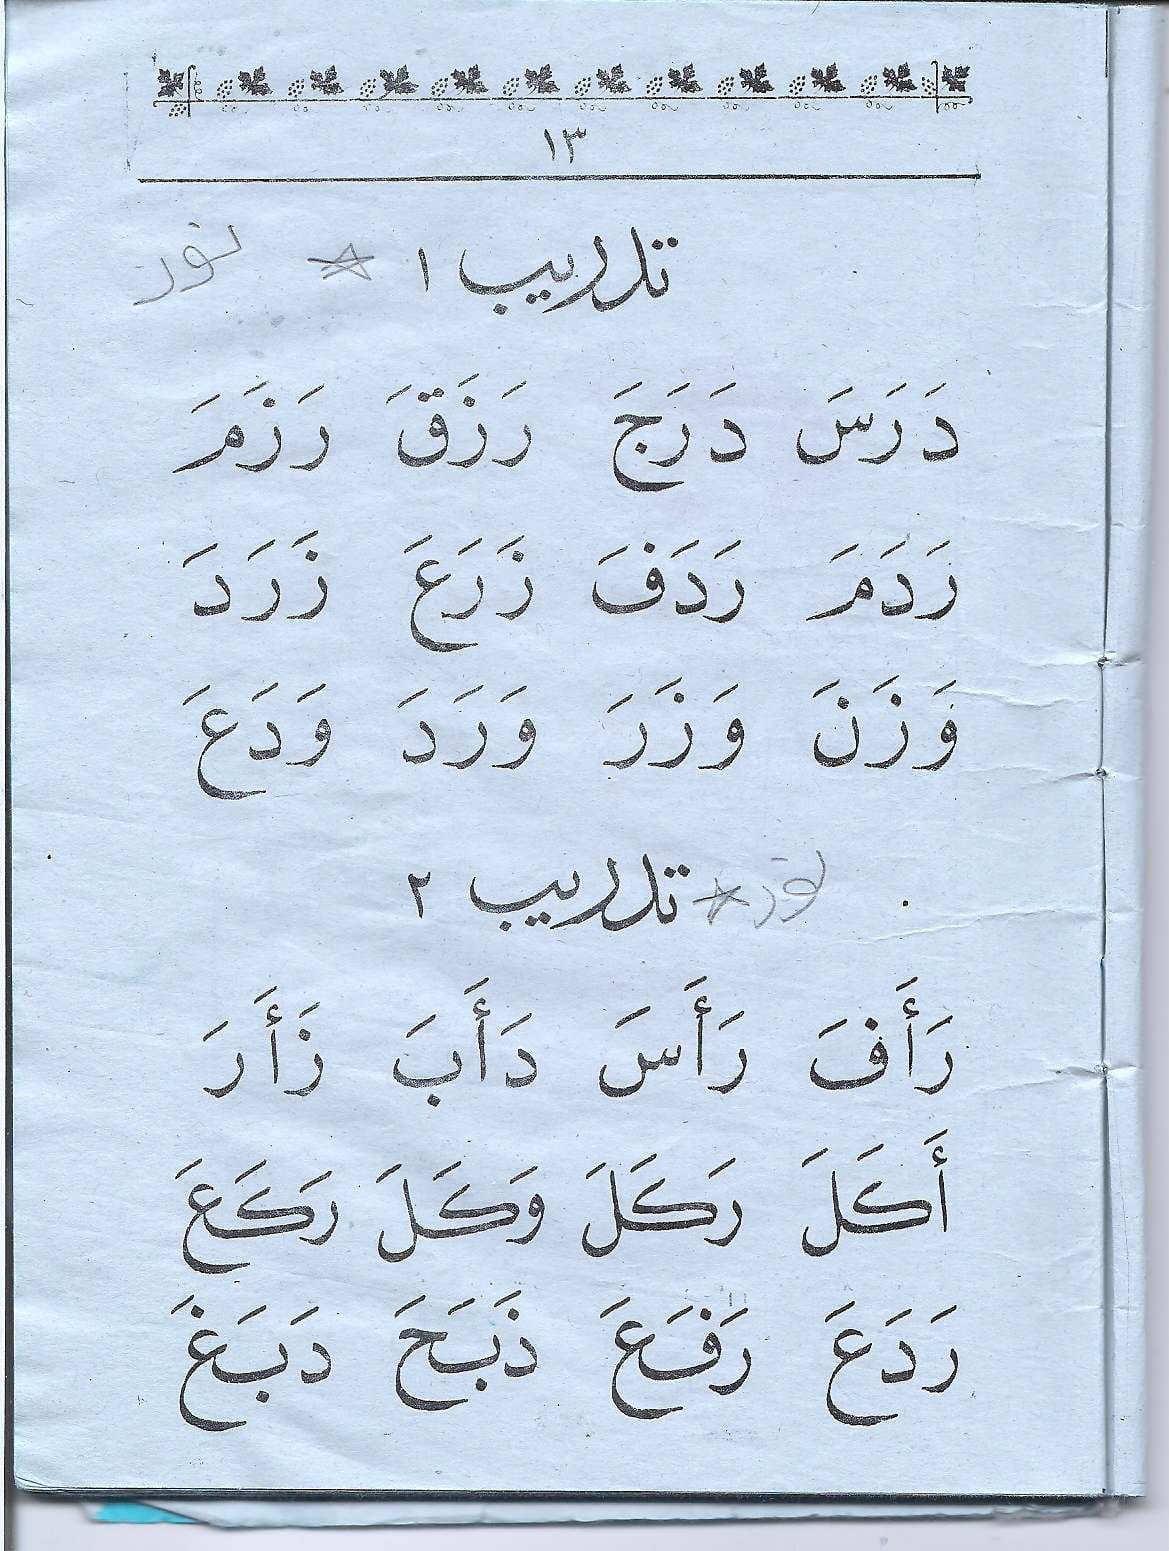 ١٣
تدريب ١ * نور
دَرَسَ دَرَجَ رَزَقَ رَزَمَ
رَدَمَ رَدَفَ زَرَعَ زَرَدَ
وَزَنَ وَزَرَ وَرَدَ وَدَعَ
نور * تدريب ٢
رَأَفَ رَأَسَ دَأَبَ زَأَرَ
أَكَلَ رَكَلَ وَكَلَ رَكَعَ
رَدَعَ رَفَعَ ذَبَحَ دَبَغَ